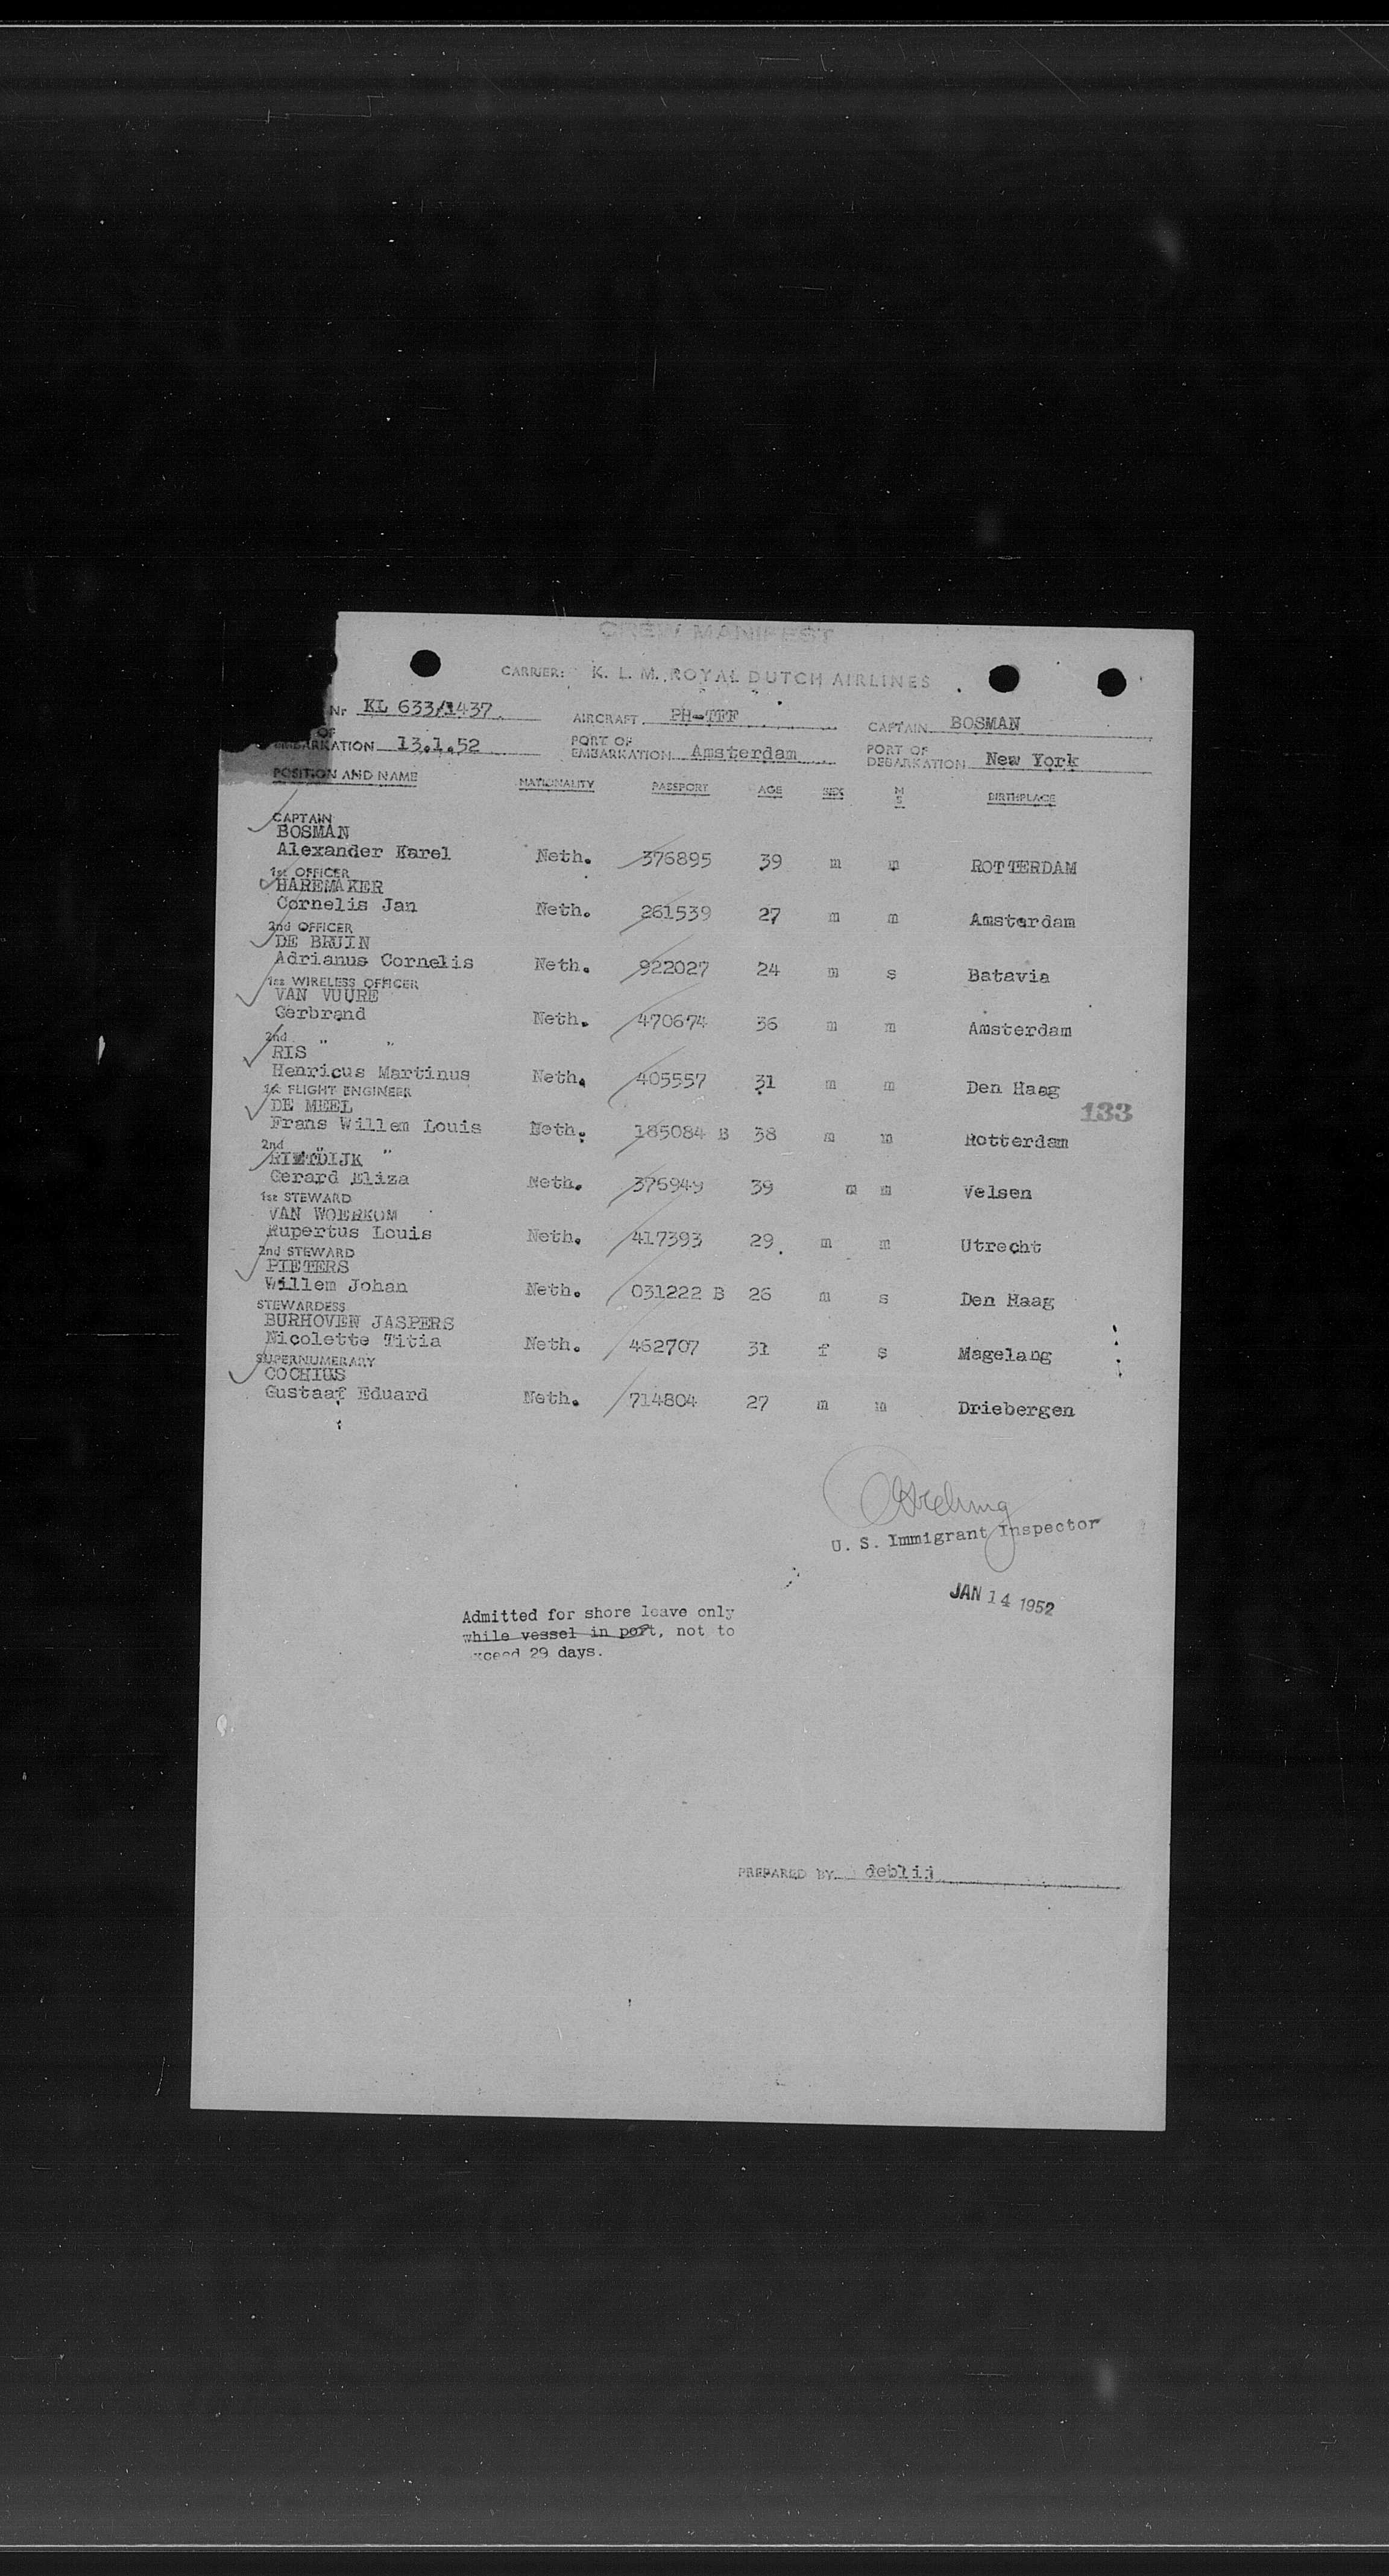 CREW MANIFEST
CARRIER: K. L. M. ROYAL DUTCH AIRLINES
Nr KL 633/1437 AIRCRAFT PH-TFF CAPTAIN BOSMAN
OF EMBARKATION 13.1.52 PORT OF EMBARKATION Amsterdam PORT OF DEBARKATION New York
POSITION AND NAME NATIONALITY PASSPORT AGE SEX M S BIRTHPLACE
CAPTAIN
BOSMAN
Alexander Karel Neth. 376895 39 m m ROTTERDAM
1st OFFICER
HAREMAKER
Cornelis Jan Neth. 261539 27 m m Amsterdam
2nd OFFICER
DE BRUIN
Adrianus Cornelis Neth. 922027 24 m s Batavia
1st WIRELESS OFFICER
VAN VUURE
Gerbrand Neth. 470674 36 m m Amsterdam
2nd " "
RIS
Henricus Martinus Neth. 405557 31 m m Den Haag
1st FLIGHT ENGINEER
133
DE MEEL
Frans Willem Louis Neth. 185084 B 38 m m Rotterdam
2nd " "
RIETDIJK
Gerard Eliza Neth. 376949 39 m m Velsen
1st STEWARD
VAN WOERKOM
Rupertus Louis Neth. 417393 29 m m Utrecht
2nd STEWARD
PIETERS
Willem Johan Neth. 031222 B 26 m s Den Haag
STEWARDESS
BURHOVEN JASPERS
Nicolette Titia Neth. 462707 31 f s Magelang
SUPERNUMERARY
COCHIUS
Gustaaf Eduard Neth. 714804 27 m m Driebergen
U. S. Immigrant Inspector
JAN 14 1952
Admitted for shore leave only
while vessel in port, not to
exceed 29 days.
PREPARED BY deblij